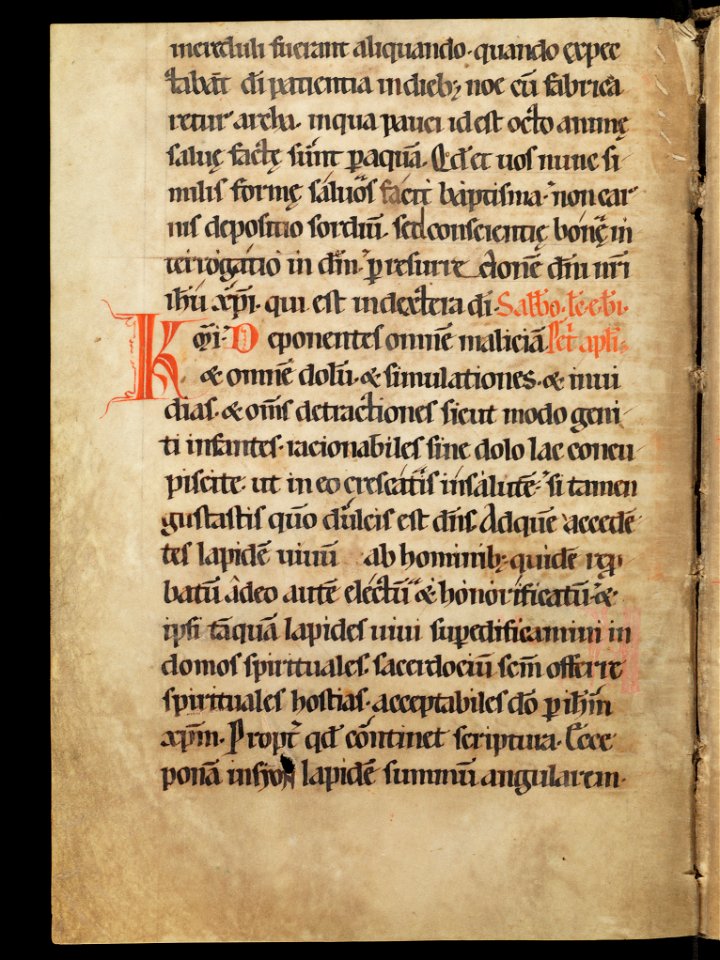 increduli fuerant aliquando. quando expec
tabat̄ dī patientia in dieb; noe cū fabrica
retur archa. in qua pauci id est octo animę
saluę factę sunt p aquā. Qd̄ et uos nunc si
milis formę saluos facit baptisma. non car
nis depositio sordiū. sed conscientię bonę in
terrogatio in dm̄. p resurrectionem dn̄i nr̄i
ih̄u xp̄i. qui est in dextera dī. Sabb̄o. lc̄. e. bī.
Km̄i. Deponentes omnem maliciā Petr̄ apl̄i
& omnē dolū. & simulationes. & inui
dias. & om̄s detractiones sicut modo geni
ti infantes. racionabiles sine dolo lac concu
piscite. ut in eo crescatis in salutē. si tamen
gustastis qūo dulcis est dn̄s. Ad quē accedē
tes lapidē uiuū ab hominib; quidē rep
batū a deo autē electū & honorificatū. &
ipsi tāquā lapides uiui supedificamini in
domos spirituales. sacerdociū scm̄ offerre
spirituales hostias. acceptabiles dō p ih̄m
xp̄m. Propt̄ qd̄ continet scriptura. Ecce
ponā in syon lapidē summū angularem.